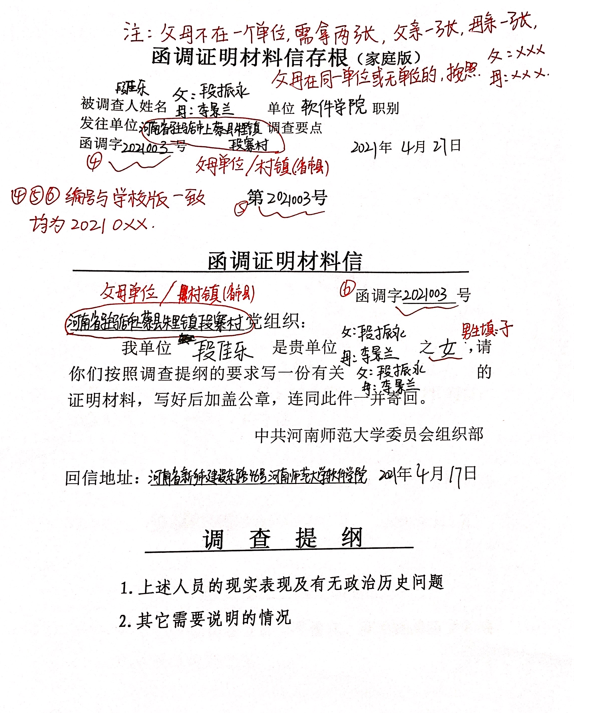 注：父母不在一个单位，需拿两张，父亲一张，母亲一张，
函调证明材料信存根（家庭版）
父母在同一单位或无单位的，按照 父：×××
母：×××.
段佳乐
被调查人姓名 父：段振永 母：李景兰 单位 软件学院 职别
发往单位 河南省驻马店市上蔡县朱里镇段寨村 调查要点
函调字2021003号 2021年4月27日
④ 父母单位/村镇(省市县)
④⑤⑥编号与学校版一致
均为20210××.
⑤ 第2021003号
函调证明材料信
父母单位/村镇(省市县)
⑥ 函调字2021003号
河南省驻马店市上蔡县朱里镇段寨村党组织：
男生填:子
我单位 段佳乐 是贵单位 父：段振永 母：李景兰 之女，请
你们按照调查提纲的要求写一份有关 父：段振永 母：李景兰 的
证明材料，写好后加盖公章，连同此件一并寄回。
中共河南师范大学委员会组织部
回信地址：河南省新乡市建设东路46号河南师范大学软件学院 2021年4月17日
调查提纲
1.上述人员的现实表现及有无政治历史问题
2.其它需要说明的情况